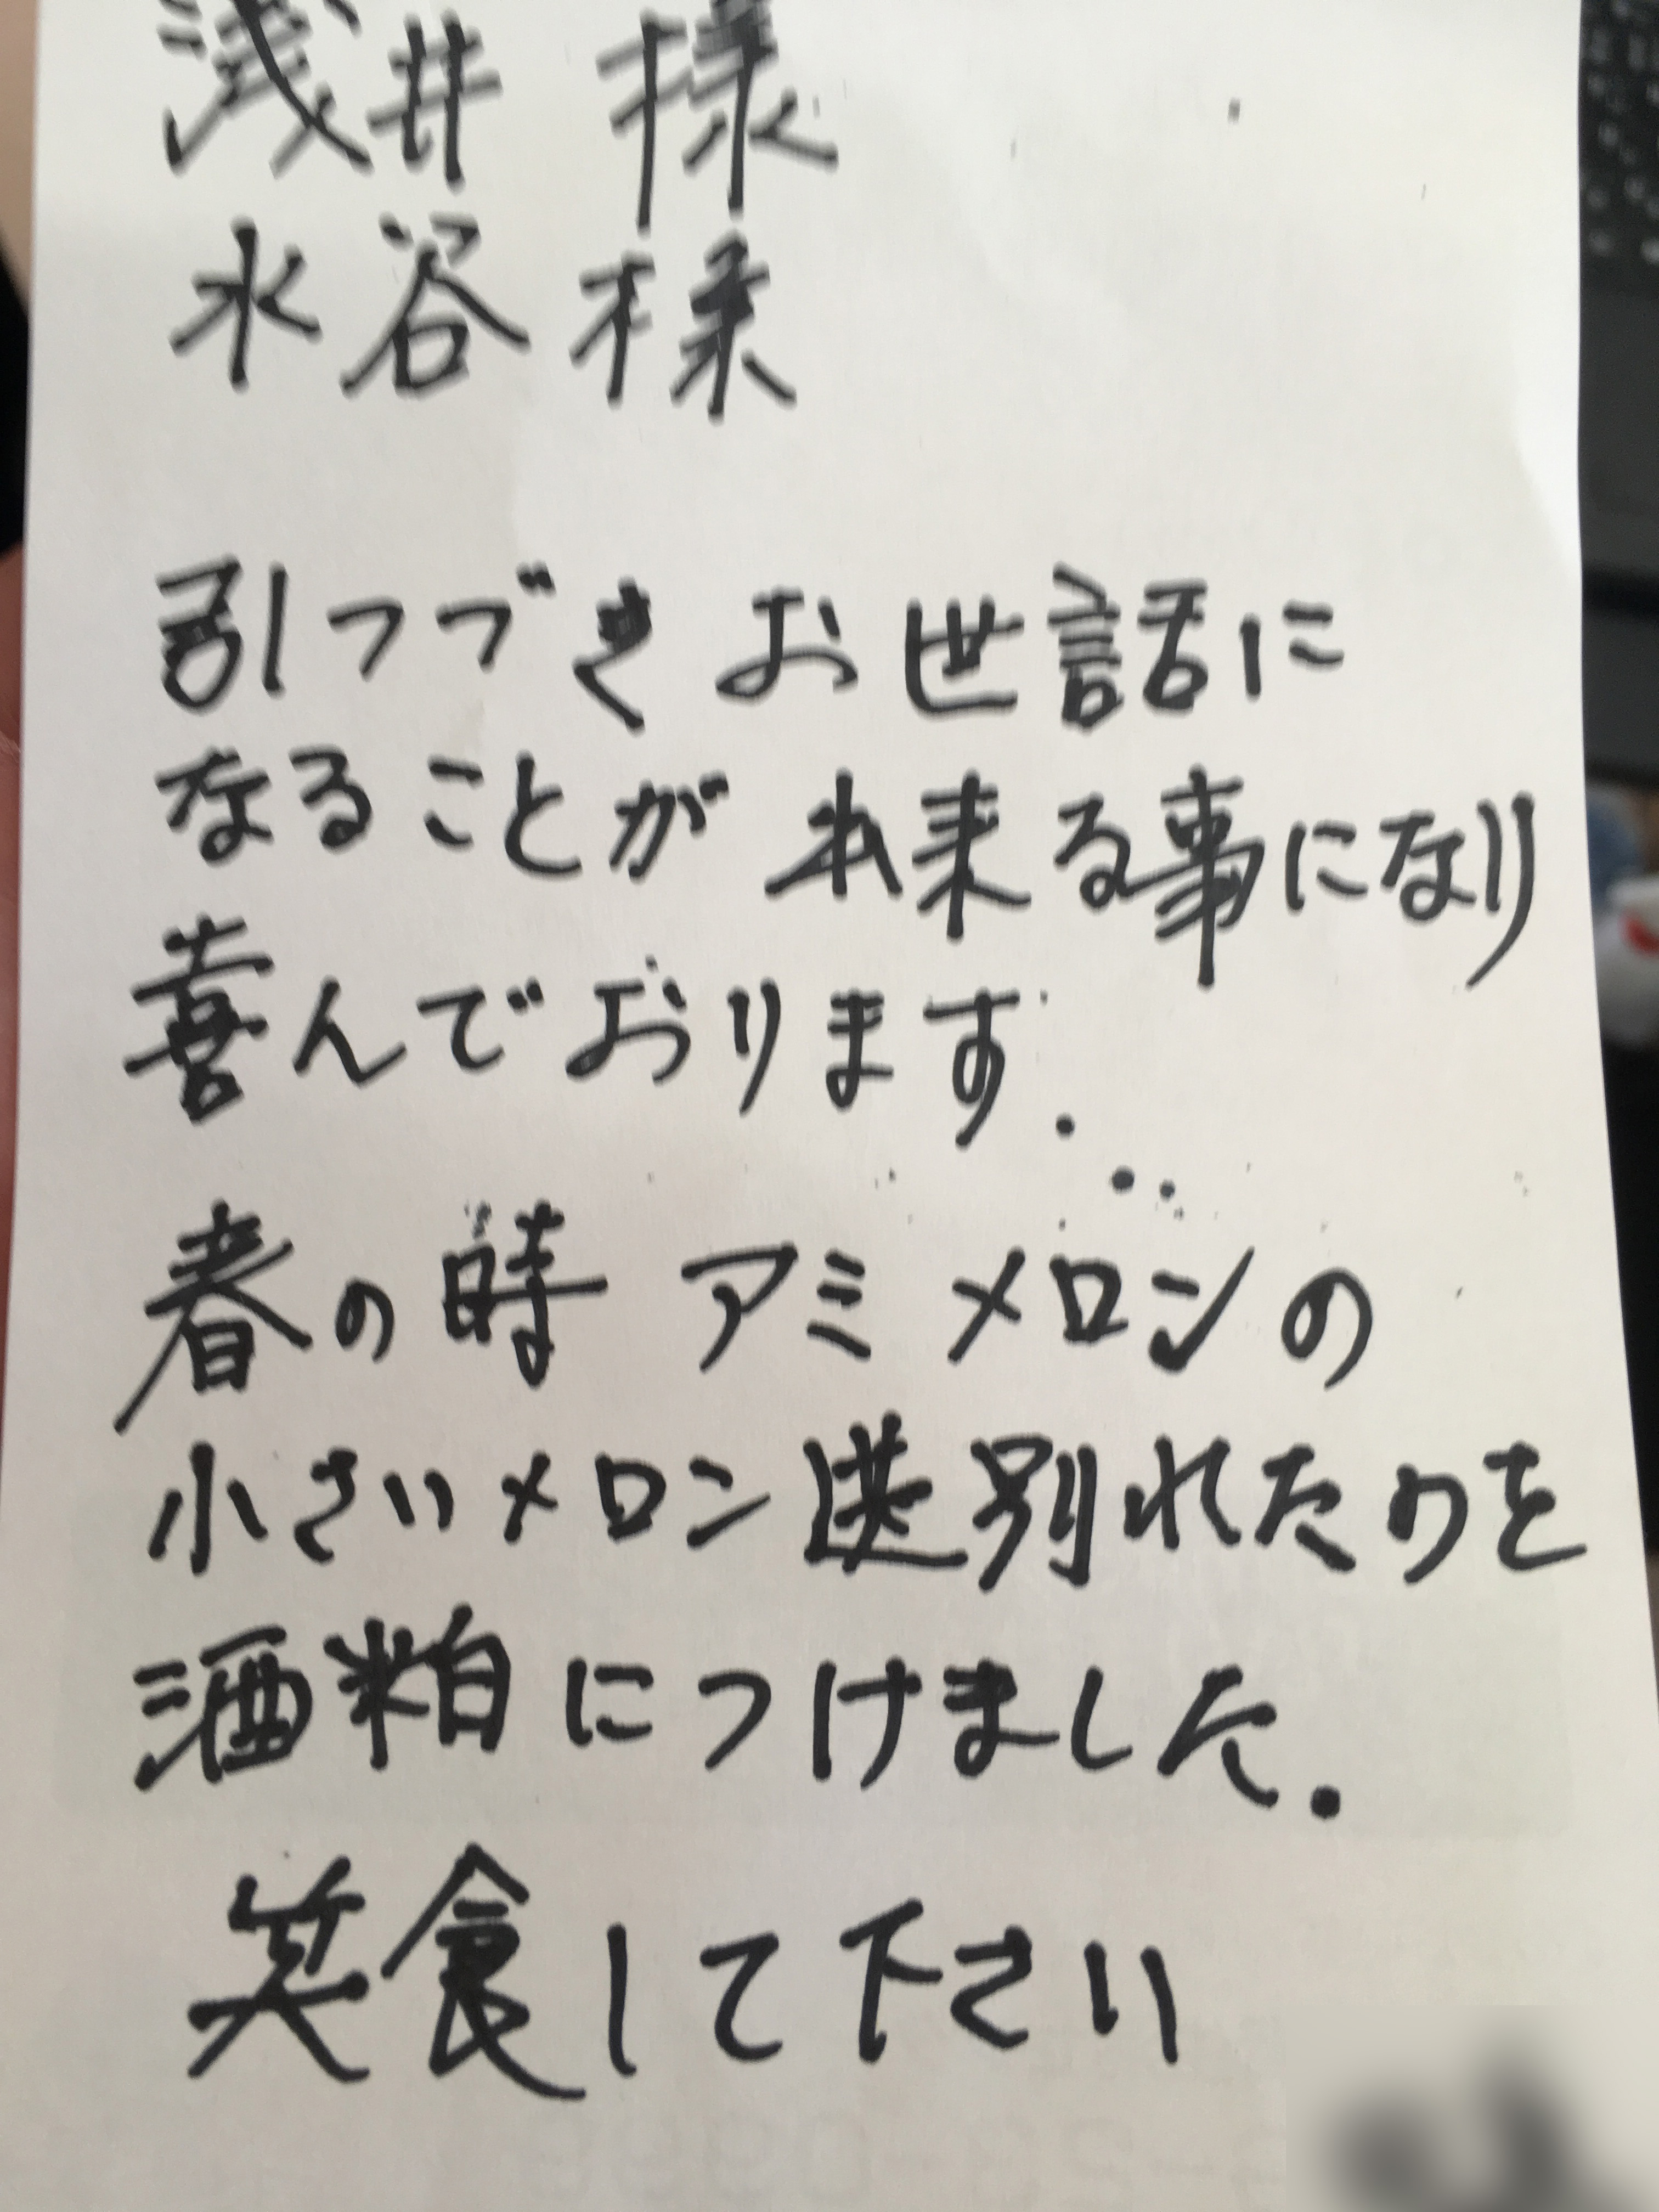 浅井 様
水谷 様
引つづきお世話に
なることが出来る事になり
喜んでおります.
春の時 アミメロンの
小さいメロン選別れたのを
酒粕につけました.
笑食して下さい